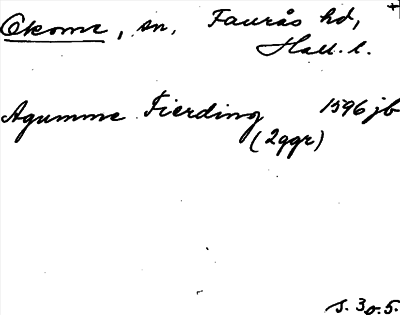 Okome, sn, Faurås hd,
Hall. l.
Agumme Fierding 1596 jb
(2ggr)
s. 30.5.